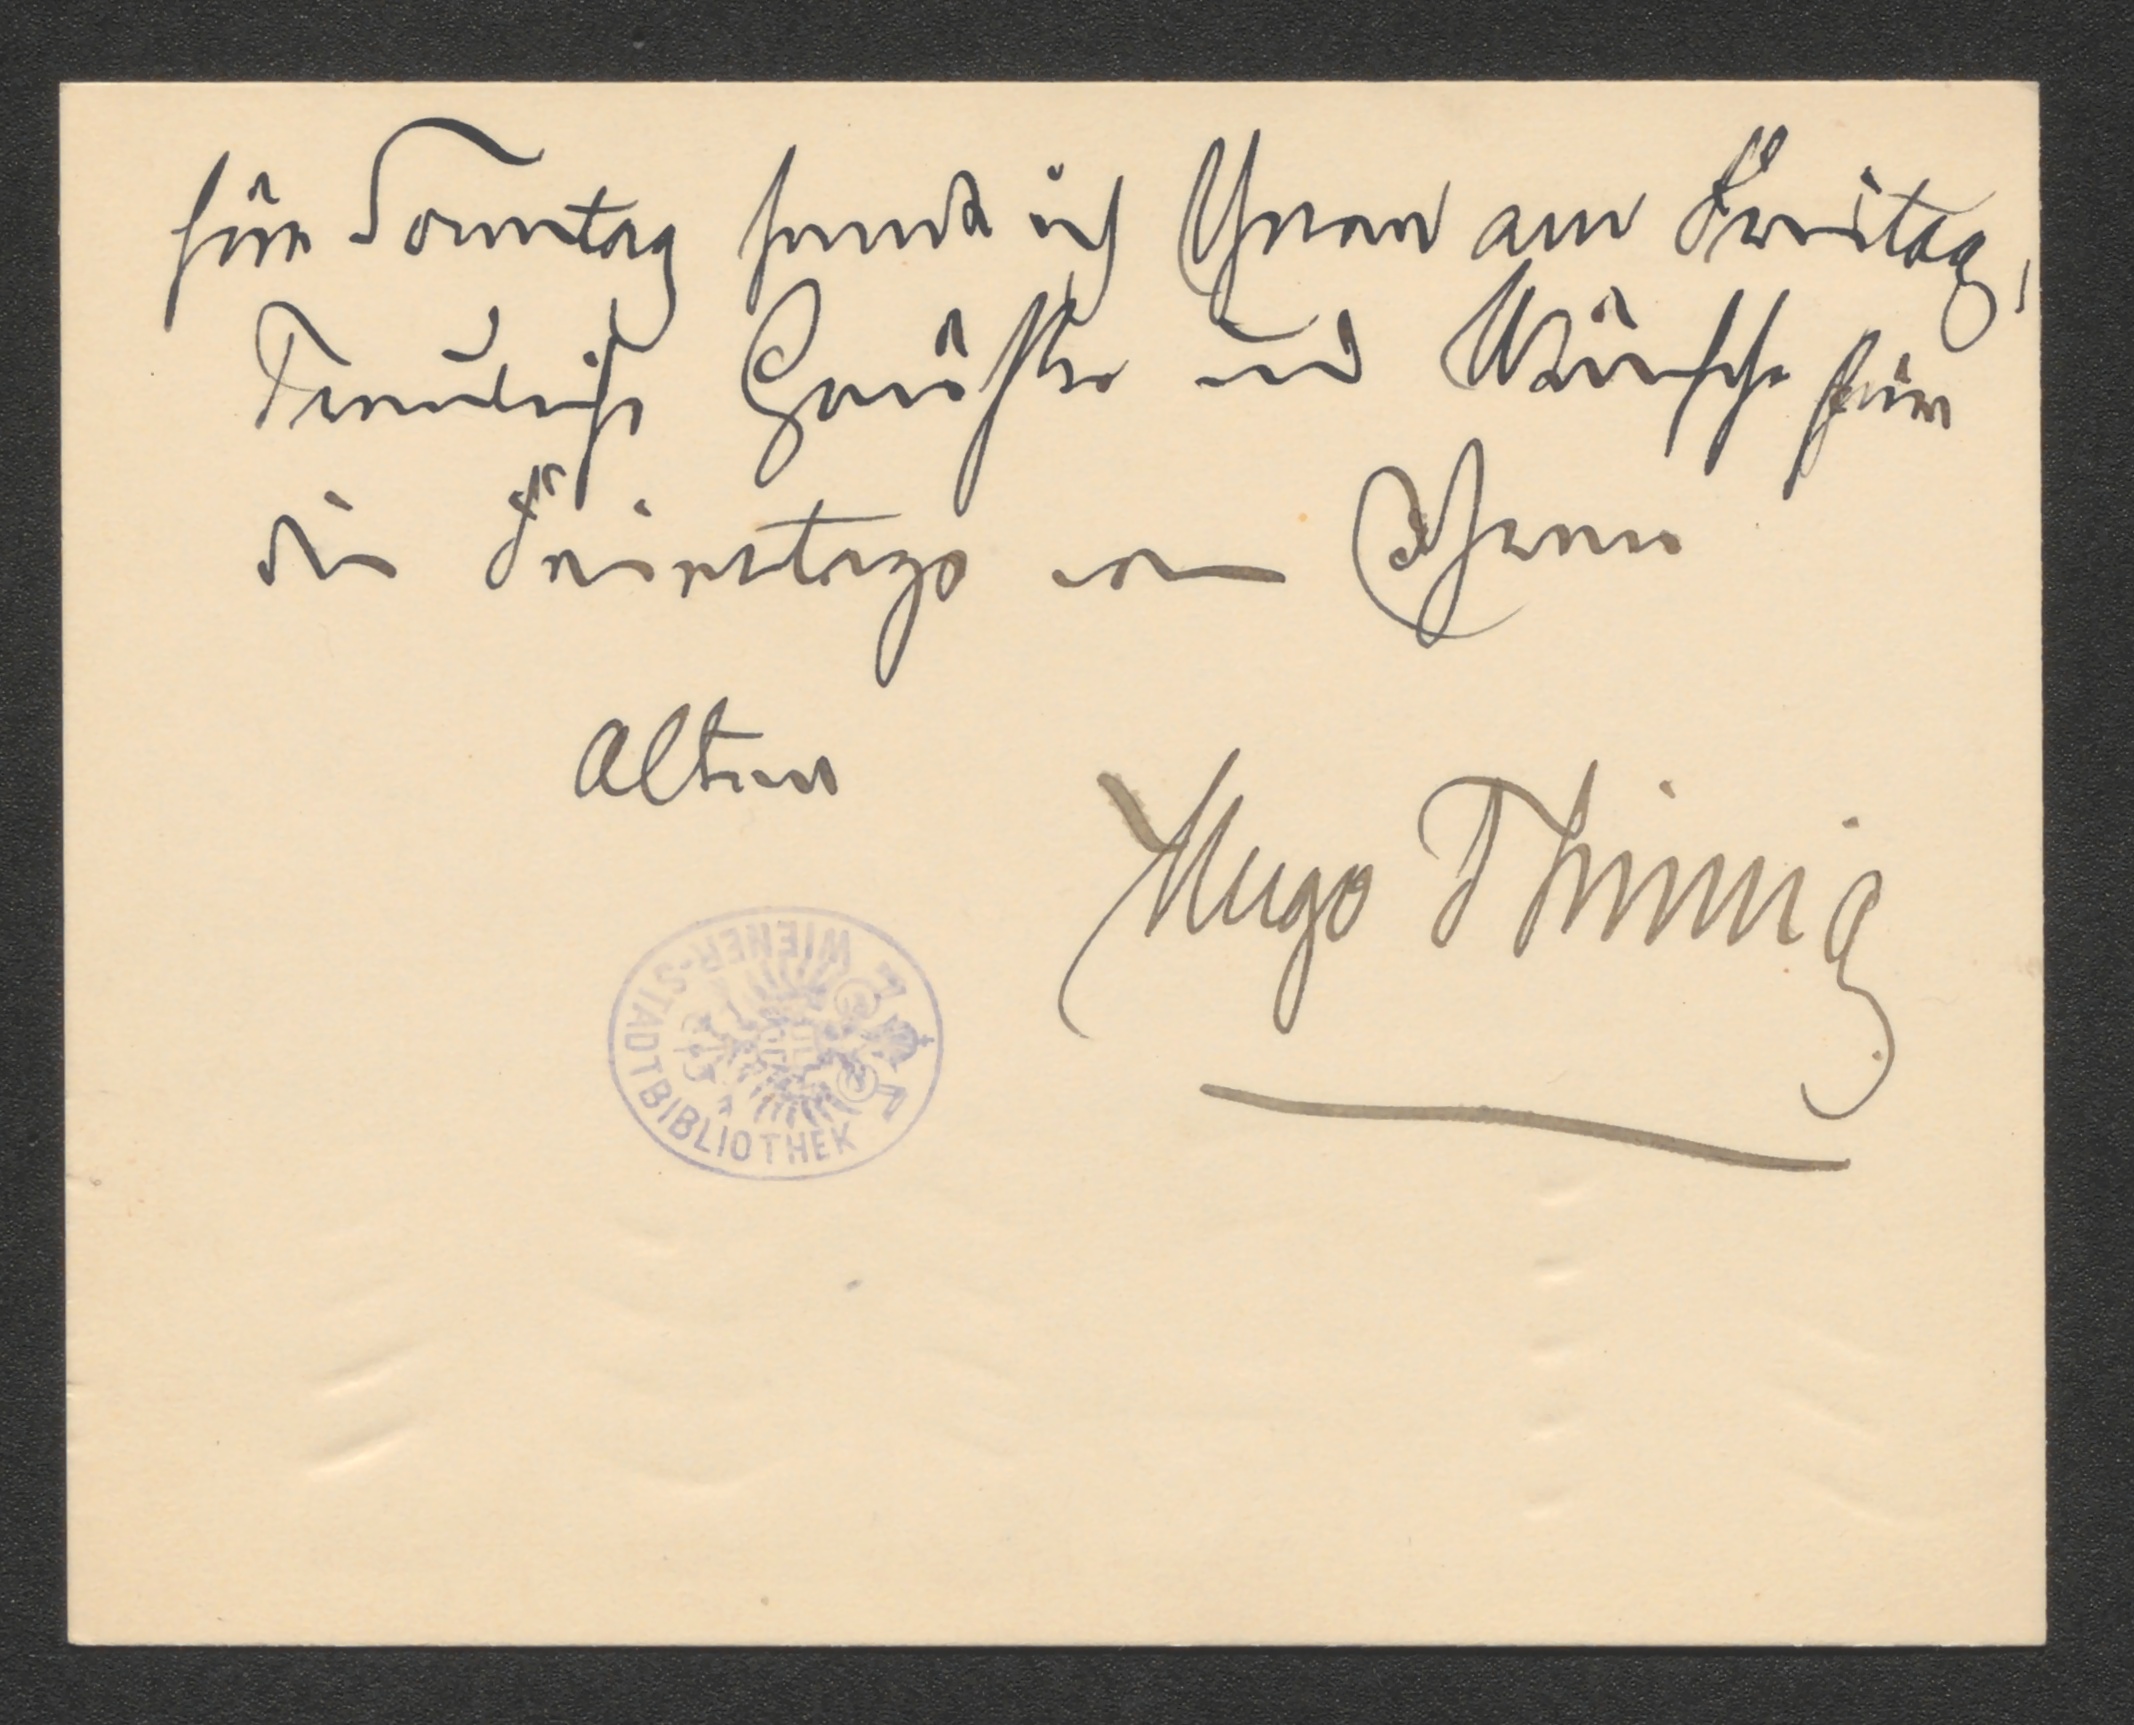 für Sonntag sende ich Ihnen am Freitag,
Treulichste Grüße und Wünsche für
die Feiertage von Ihrem
alten
Hugo Thimig
WIENER-STADTBIBLIOTHEK